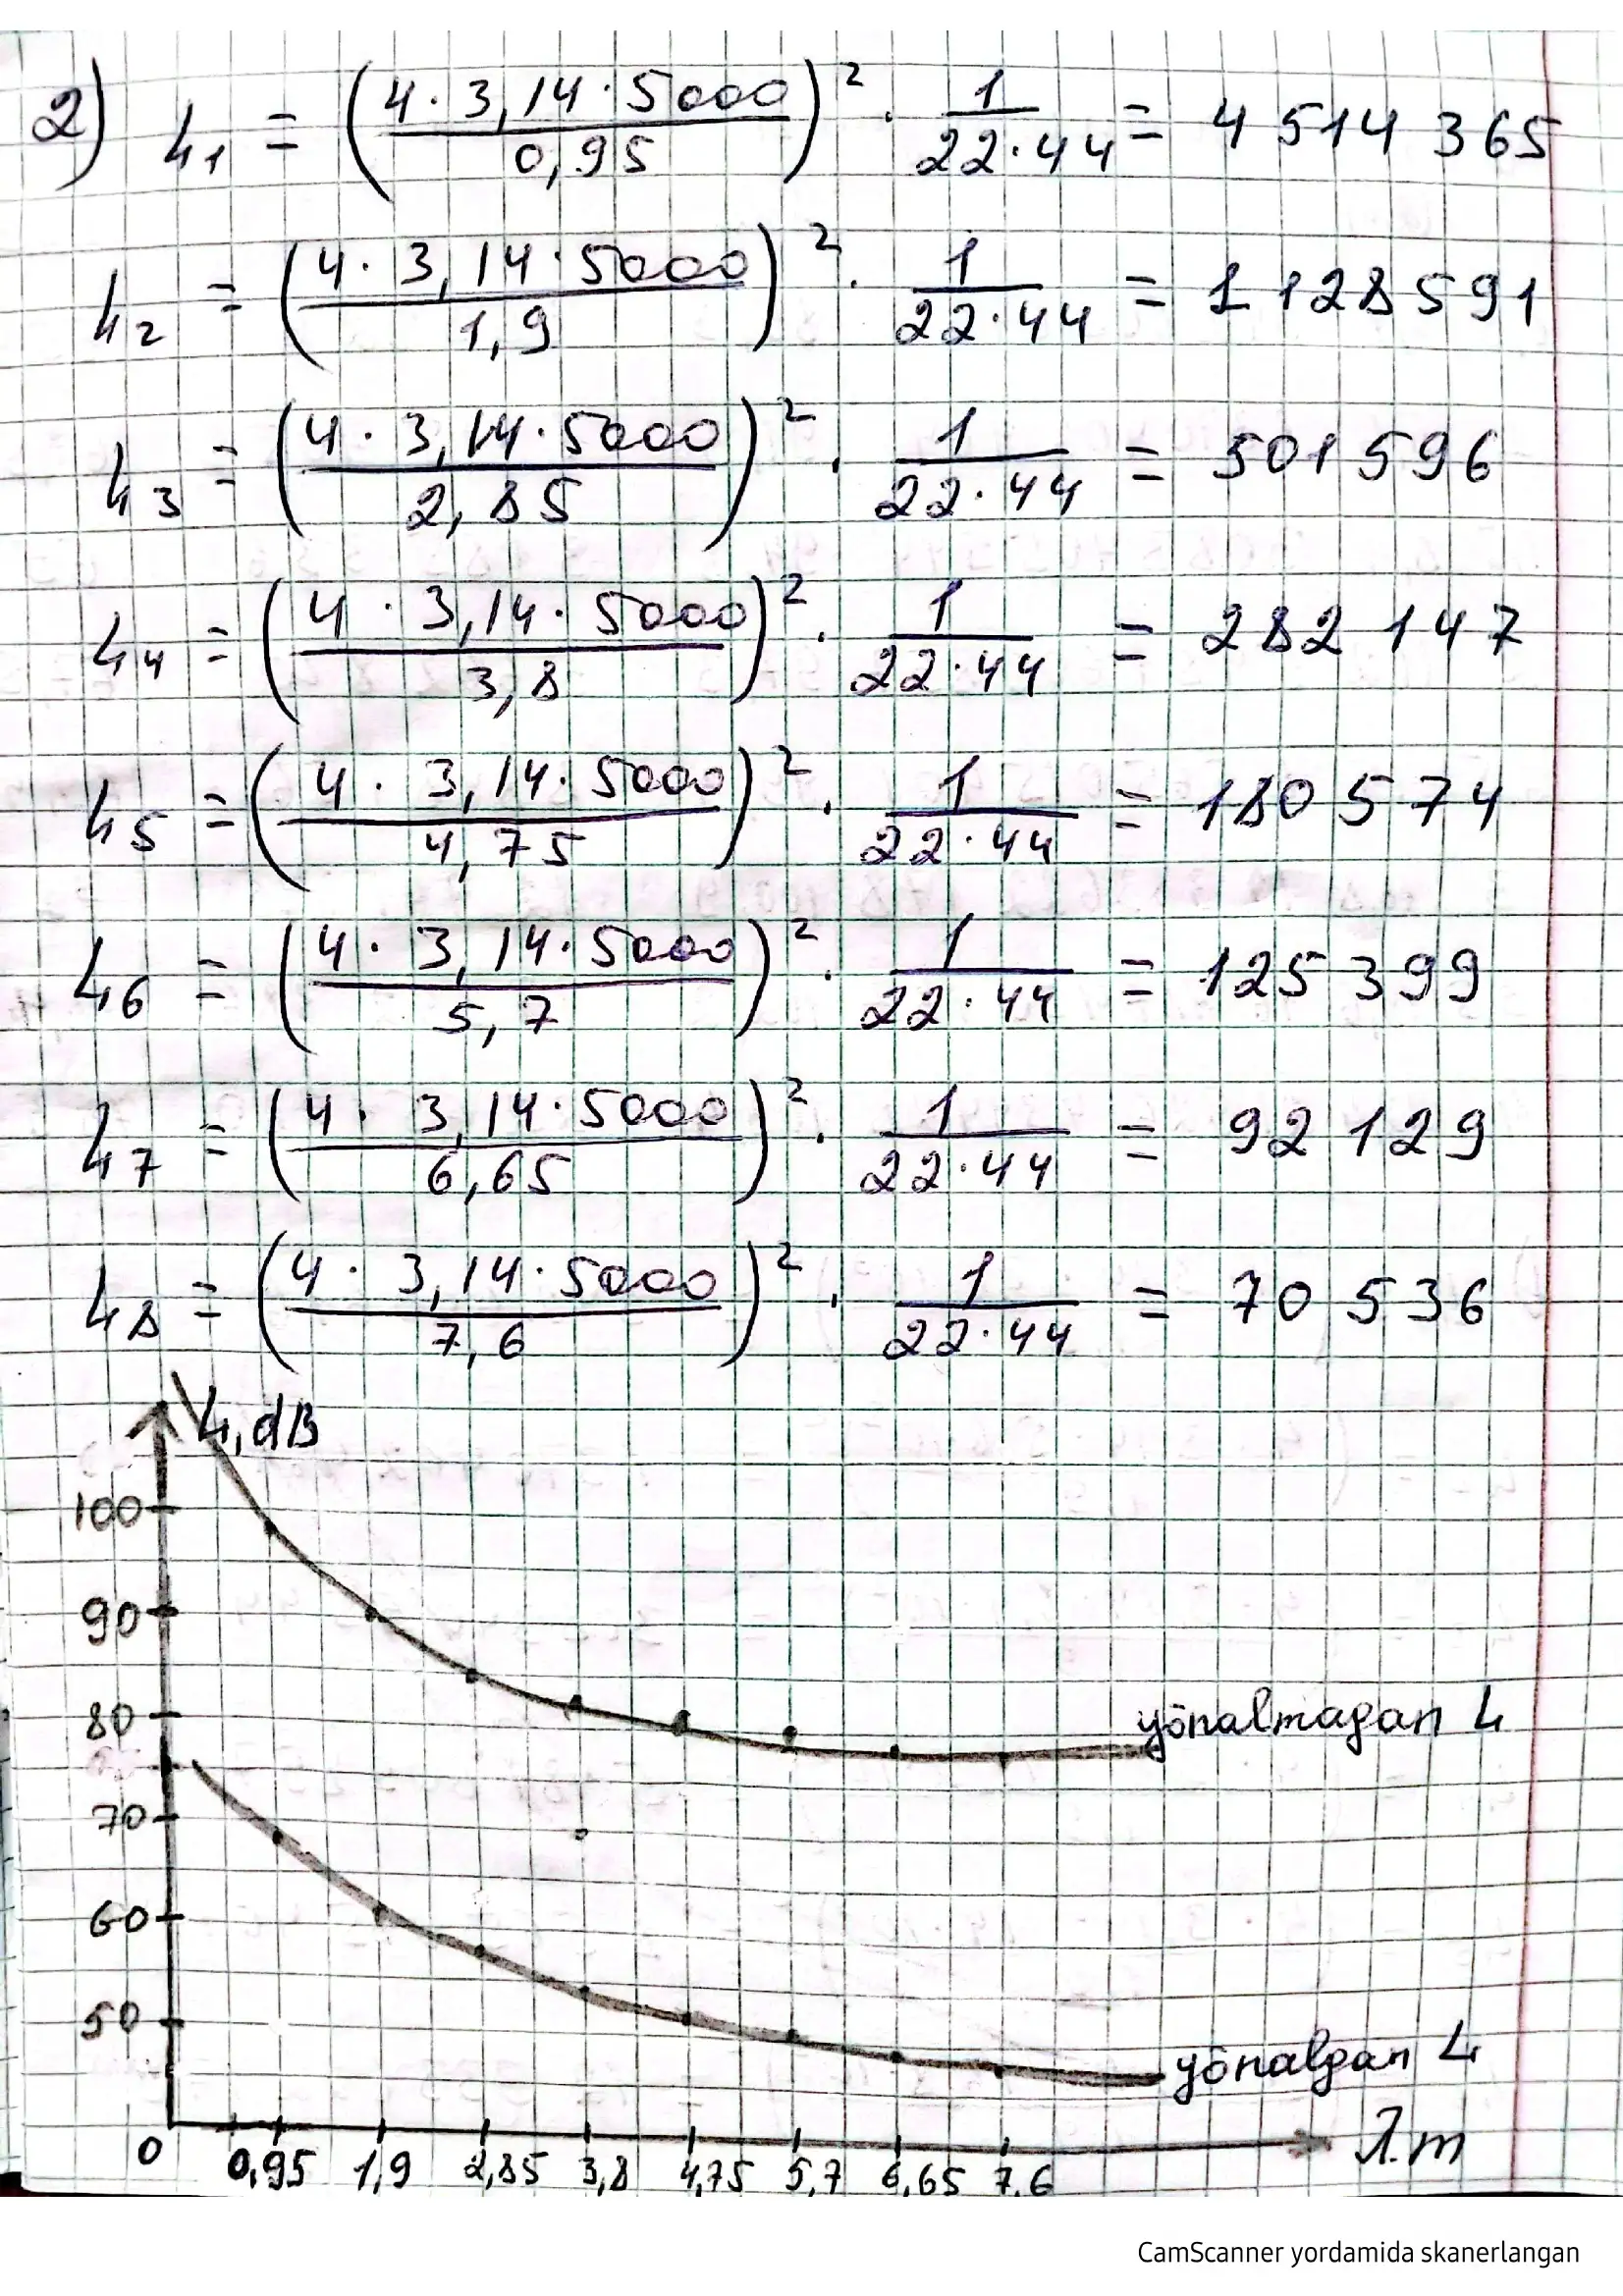 2) L₁ = (4 · 3,14 · 5000 / 0,95)² · 1 / 22·44 = 4 514 365
L₂ = (4 · 3,14 · 5000 / 1,9)² · 1 / 22·44 = 1 128 591
L₃ = (4 · 3,14 · 5000 / 2,85)² · 1 / 22·44 = 501 596
L₄ = (4 · 3,14 · 5000 / 3,8)² · 1 / 22·44 = 282 147
L₅ = (4 · 3,14 · 5000 / 4,75)² · 1 / 22·44 = 180 574
L₆ = (4 · 3,14 · 5000 / 5,7)² · 1 / 22·44 = 125 399
L₇ = (4 · 3,14 · 5000 / 6,65)² · 1 / 22·44 = 92 129
L₈ = (4 · 3,14 · 5000 / 7,6)² · 1 / 22·44 = 70 536
L, dB
100
90
80
yōnalmagan L
70
60
50
yōnalgan L
0 0,95 1,9 2,85 3,8 4,75 5,7 6,65 7,6 λ.m
CamScanner yordamida skanerlangan